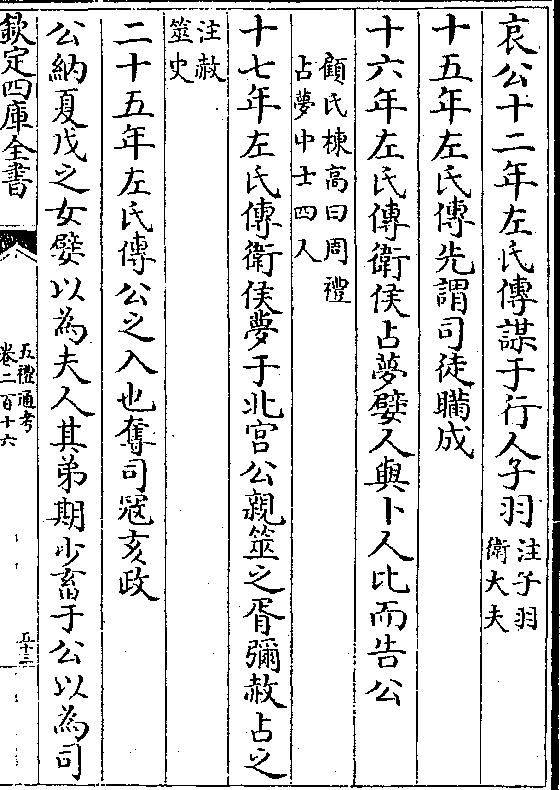 哀公十二年左氏傳謀于行人子羽注子羽
衛大夫
十五年左氏傳先謂司徒瞞成
十六年左氏傳衛侯占夢嬖人與卜人比而告公
顧氏棟高曰周禮
占夢中士四人
十七年左氏傳衛侯夢于北宮公親筮之胥彌赦占之
注赦
筮史
二十五年左氏傳公之入也奪司冦亥政
公納夏戊之女嬖以為夫人其弟期少畜于公以為司
欽定四庫全書
五禮通考
卷二百十六
五十三